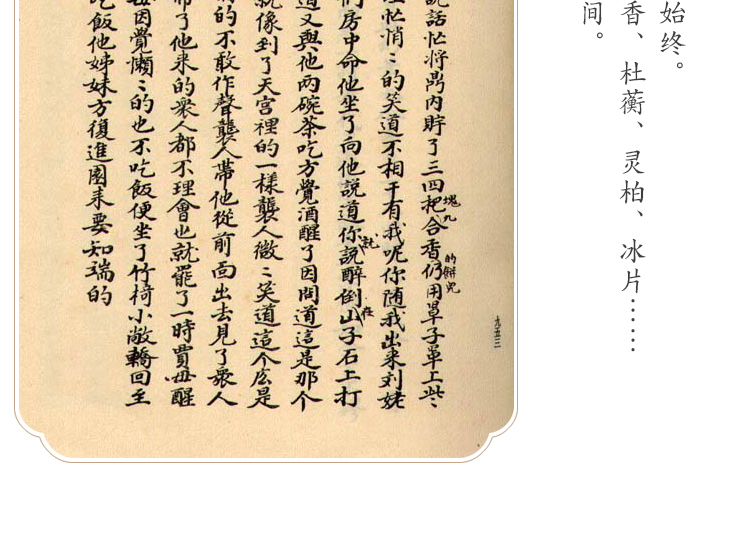 始终。
香、杜蘅、灵柏、冰片……
间。
九五三
説話忙将鼎内貯了三四把合香仍用罩子罩上些〻
塊九
的餅兒
忙悄〻的笑道不相干有我呢你随我出来刘姥
們房中命他坐了向他説道你説醉倒山子石上打
就
在
道又與他两碗茶吃方覺酒醒了因問道這是那个
就像到了天宫裡的一樣襲人微〻笑道這个庅是
的不敢作聲襲人帶他從前面出去見了衆人
了他来的衆人都不理會也就罷了一時賈母醒
因覺懶〻的也不吃飯便坐了竹椅小敞轎回至
吃飯他姊妹方復進園来要知端的